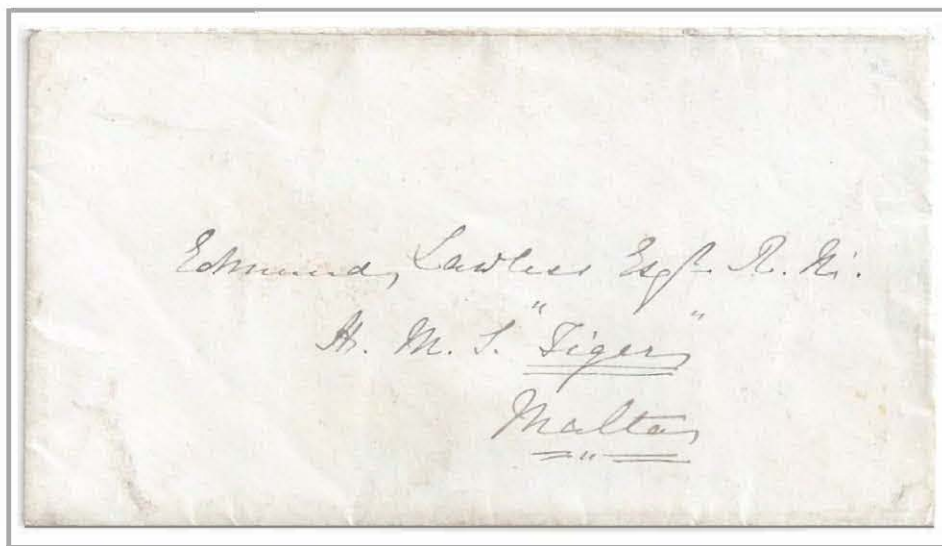 Edmund, Lawless Esqr. R. N.
H. M. S. "Tiger"
Malta